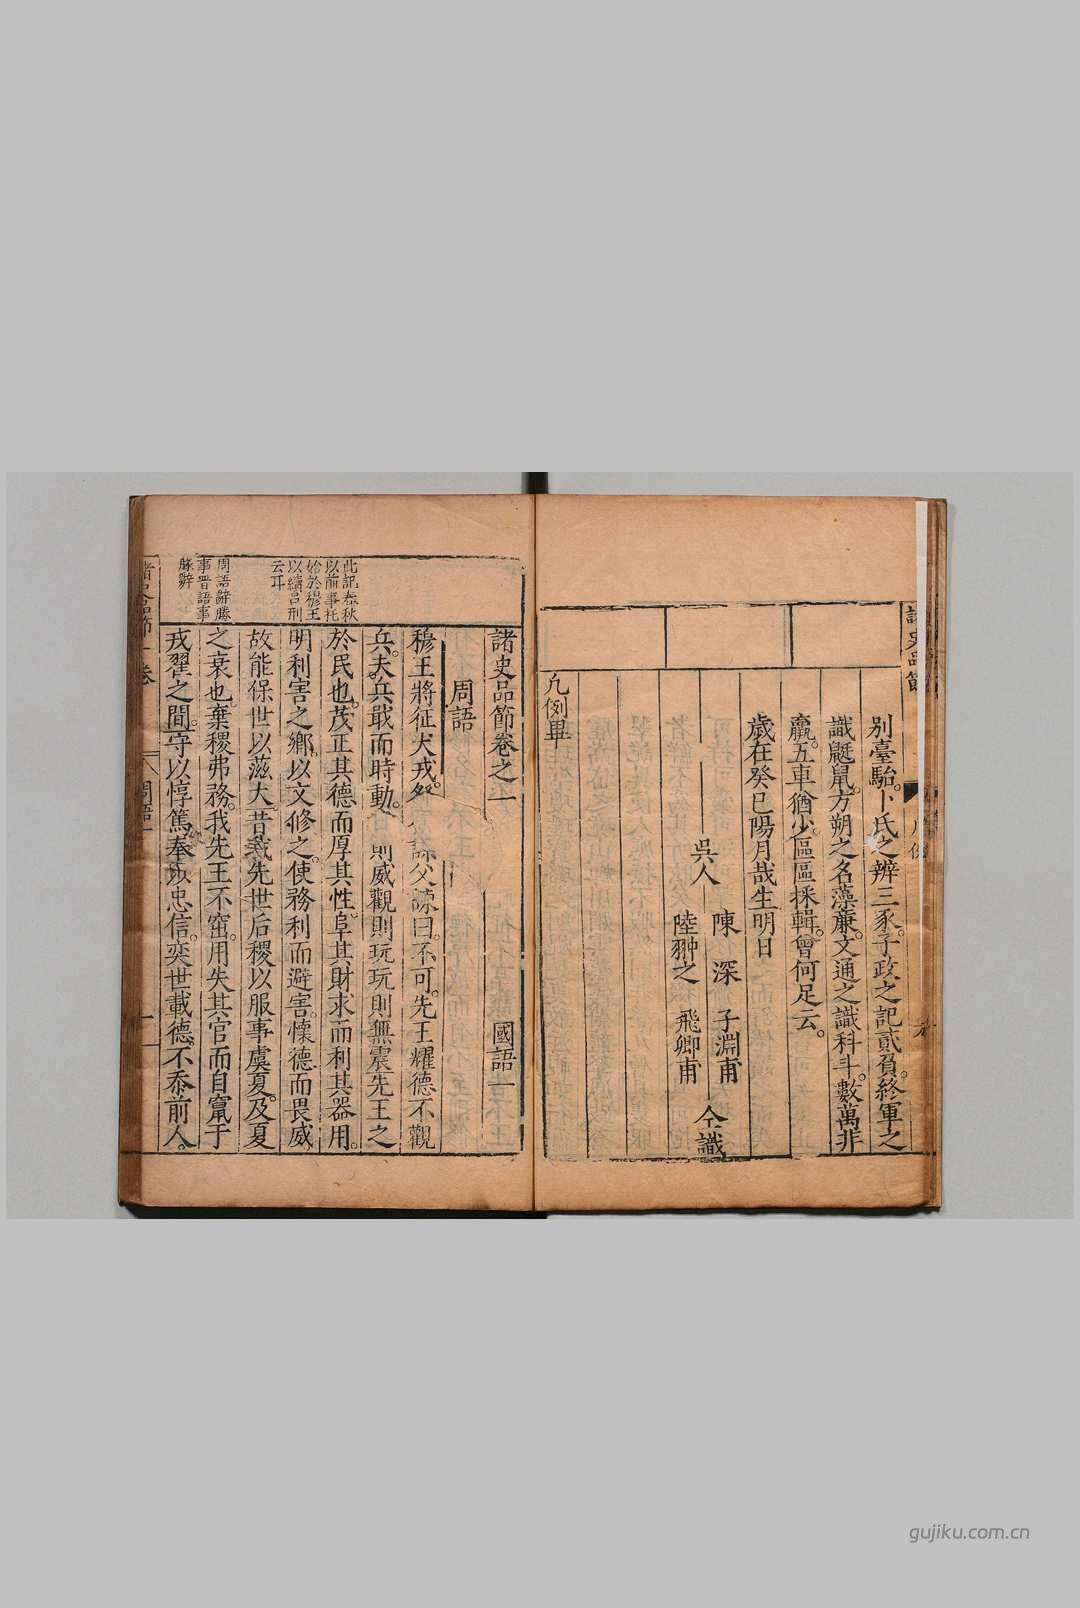 別臺駘。卜氏之辨三豕。子政之記貳負。終軍之
識鼮鼠。方朔之名藻廉。文通之識科斗。數萬非
羸。五車猶少。區區採輯。曾何足云。
歲在癸巳陽月哉生明日
吳人
陳深子淵甫
陸翀之飛卿甫
仝識
凡例畢
諸史品節卷之一
國語一
周語
此記春秋
以前事托
始於穆王
以續呂刑
云耳
周語辭勝
事晋語事
勝辭
穆王將征犬戎。祭公謀父諫曰。不可。先王耀德不觀
兵。夫兵戢而時動。動則威觀則玩玩則無震先王之
於民也。茂正其德而厚其性。阜其財求而利其器用。
明利害之鄉。以文修之。使務利而避害。懷德而畏威
故能保世以滋大。昔我先世后稷以服事虞夏。及夏
之衰也。棄稷弗務。我先王不窋。用失其官而自竄于
戎翟之間。守以惇篤。奉以忠信。奕世載德。不忝前人。
gujiku.com.cn